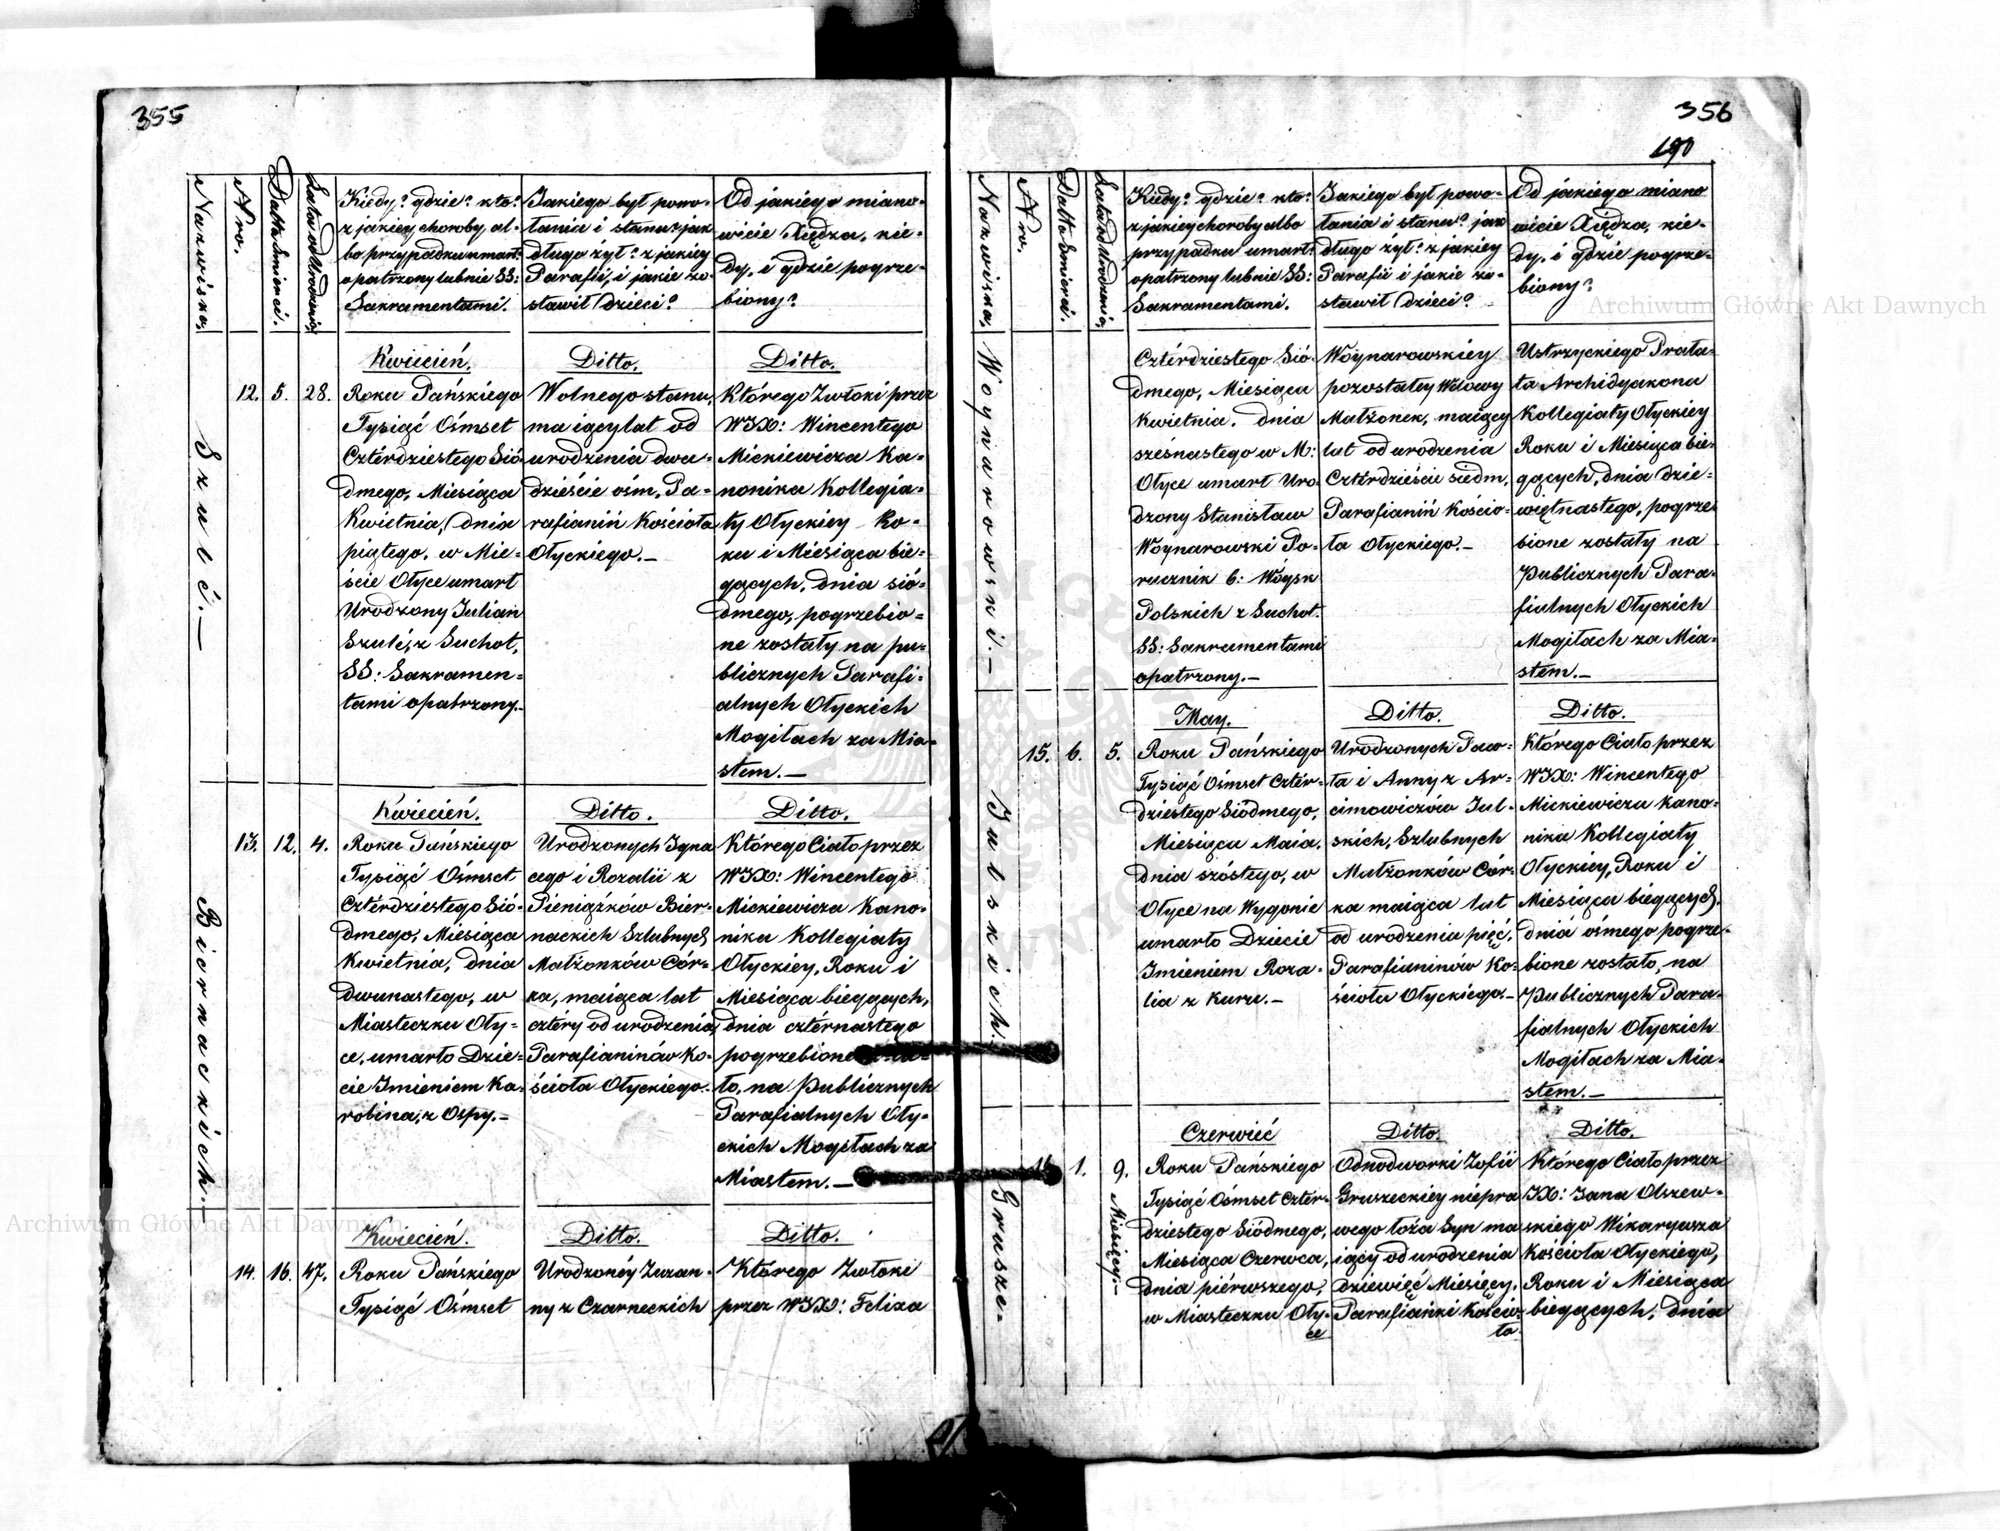 355
Nazwiska.
Nro.
Datta Śmierci.
Lata od Urodzenia
Kiedy? gdzie? kto?
z jakiey choroby al-
bo przypadku umarł?
opatrzony lub nie SS:
Sakramentami.
Jakiego był powo-
łania i stanu? jak
długo żył? z jakiey
Parafii, i jakie zo-
stawił dzieci?
Od jakiego miano-
wicie Xiędza, kie-
dy, i gdzie pogrze-
biony?
Szulć.—
12. 5. 28.
Kwiecień.
Roku Pańskiego
Tysiąć Ośmset
Cztérdziestego Sió-
dmego, Miesiąca
Kwietnia, dnia
piątego, w Mie-
ście Ołyce umarł
Urodzony Julian
Szulć, z Suchot,
SS: Sakramen-
tami opatrzony.-
Ditto.
Wolnego stanu,
maiący lat od
urodzenia dwa-
dzieście ośm, Pa-
rafianiń Kościoła
Ołyckiego.-
Ditto.
Którego Zwłoki przez
WJX: Wincentego
Mickiewicza Ka-
nonika Kollegia-
ty Ołyckiey Ro-
ku i Miesiąca bie-
gących, dnia sió-
dmego, pogrzebio-
ne zostały na pu-
blicznych Parafi-
alnych Ołyckich
Mogiłach za Mia-
stem.—
Biernackich.-
13. 12. 4.
Kwiecień.
Roku Pańskiego
Tysiąć Ośmset
Cztérdziestego Sió-
dmego, Miesiąca
Kwietnia, dnia
dwunastego, w
Miasteczku Oły-
ce, umarło Dzie-
cie Imieniem Ka-
robina, z Ospy.-
Ditto.
Urodzonych Igna
cego i Rozalii z
Pieniążków Bier-
nackich Szlubnych
Małżonków Cór-
ka, maiąca lat
cztéry od urodzenia
Parafianinów Ko-
ścioła Ołyckiego.-
Ditto.
Którego Ciało przez
WJX: Wincentego
Mickiewicza Kano-
nika Kollegiaty
Ołyckiey, Roku i
Miesiąca biegących,
dnia cztérnastego
pogrzebione
ło, na Publicznych
Parafialnych Oły-
ckich Mogiłach za
Miastem.—
14. 16. 47.
Kwiecień.
Roku Pańskiego
Tysiąć Ośmset
Ditto.
Urodzonéy Zuzan-
ny z Czarneckich
Ditto.
Którego Zwłoki
przez WJX: Felixa
356
190
Nazwiska.
Nro.
Datta Śmierci.
Lata od Urodzenia
Kiedy? gdzie? kto?
z jakiey choroby albo
przypadku umarł?
opatrzony lub nie SS:
Sakramentami.
Jakiego był powo-
łania i stanu? jak
długo żył? z jakiey
Parafii i jakie zo-
stawił dzieci?
Od jakiego miano
wicie Xiędza, kie-
dy, i gdzie pogrze-
biony?
Woynarowski.-
Cztérdziestego Sió-
dmego, Miesiąca
Kwietnia, dnia
szésnastego w M:
Ołyce umarł Uro
dzony Stanisław
Woynarowski Po-
rucznik b: Woysk
Polskich z Suchot.
SS: Sakramentami
opatrzony.-
Woynarowskiéy
pozostałey Wdowy
Małżonek, maiący
lat od urodzenia
Cztérdzieście siedm,
Parafianiń Kościo-
ła Ołyckiego.-
Ustrzyckiego Prała-
ta Archidyakona
Kollegiaty Ołyckiey
Roku i Miesiąca bie-
gących, dnia dzie-
więtnastego, pogrze
bione zostały na
Publicznych Para-
fialnych Ołyckich
Mogiłach za Mia-
stem.-
Julskich.
15. 6. 5.
May.
Roku Pańskiego
Tysiąć Ośmset Cztér-
dziestego Siódmego,
Miesiąca Maia,
dnia szóstego, w
Ołyce na Wygonie
umarło Dziecie
Imieniem Roza-
lia z Kuru.-
Ditto.
Urodzonych Paw-
ła i Anny z Ar-
cimowiczów Jul-
skich, Szlubnych
Małżonków Cór-
ka maiąca lat
od urodzenia pięć,
Parafianinów Ko-
ścioła Ołyckiego.-
Ditto.
Którego Ciało przez
WJX: Wincentego
Mickiewicza Kano-
nika Kollegiaty
Ołyckiey, Roku i
Miesiąca biegących,
dnia ósmego pogrze-
bione zostało, na
Publicznych Para-
fialnych Ołyckich
Mogiłach za Mia-
stem.-
Grusze-
1. 9.
Miesięcy.-
Czerwieć
Roku Pańskiego
Tysiąć Ośmset Cztér-
dziestego Siódmego,
Miesiąca Czerwca,
dnia piérwszego,
w Miasteczku Oły-
ce
Ditto.
Odnodworki Zofii
Gruszeckiéy niepra
wego łoża Syn ma
iący od urodzenia
dziewięć Miesięcy,
Parafiańki Kościo-
ła
Ditto.
Którego Ciało przez
JX: Jana Olszew-
skiego Wikaryusza
Kościoła Ołyckiego,
Roku i Miesiąca
biegących, dnia
Archiwum Główne Akt Dawnych
Archiwum Główne Akt Dawnych